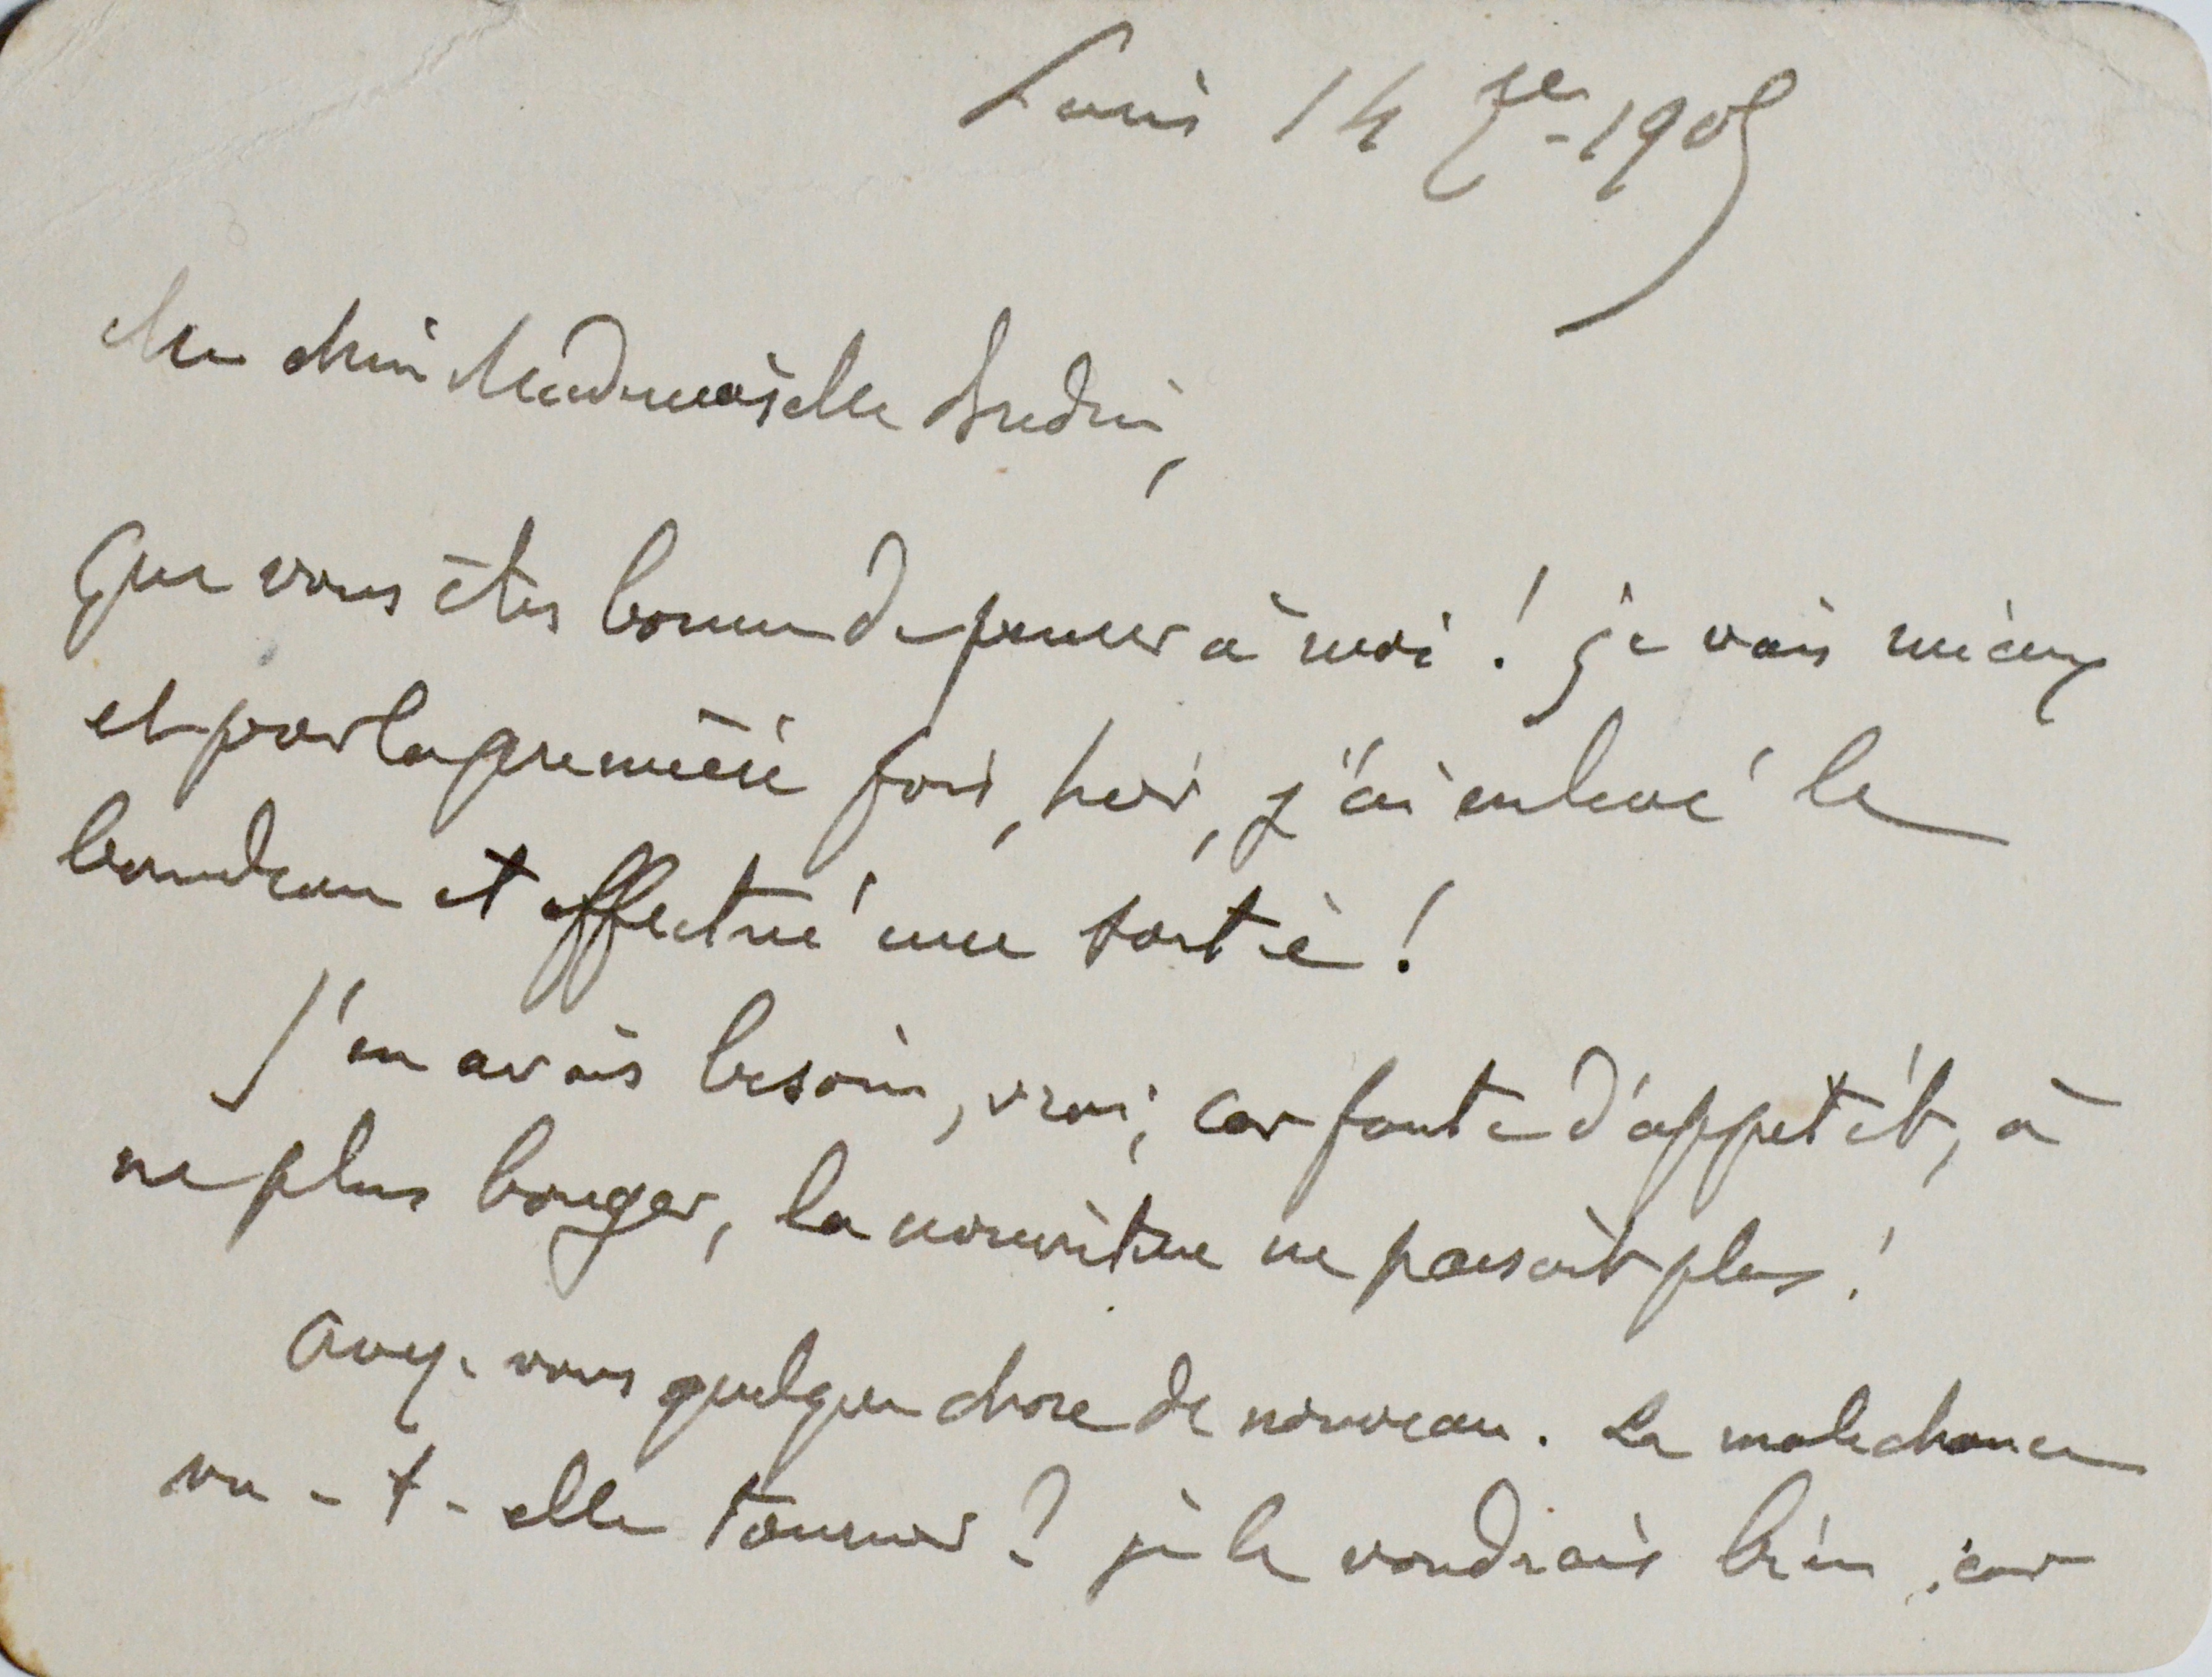 Paris 14 7re-1905
Ma chère Mademoiselle
Que vous êtes bonne de penser à moi ! je vais mieux
et pour la première fois, hier, j'ai enlevé le
bandeau et effectué une sortie !
J'en avais besoin, vrai, car faute d'appétit, à
ne plus bouger, la nourriture ne passait plus !
Avez-vous quelque chose de nouveau. La malechance
va-t-elle tourner ? je le voudrais bien, car